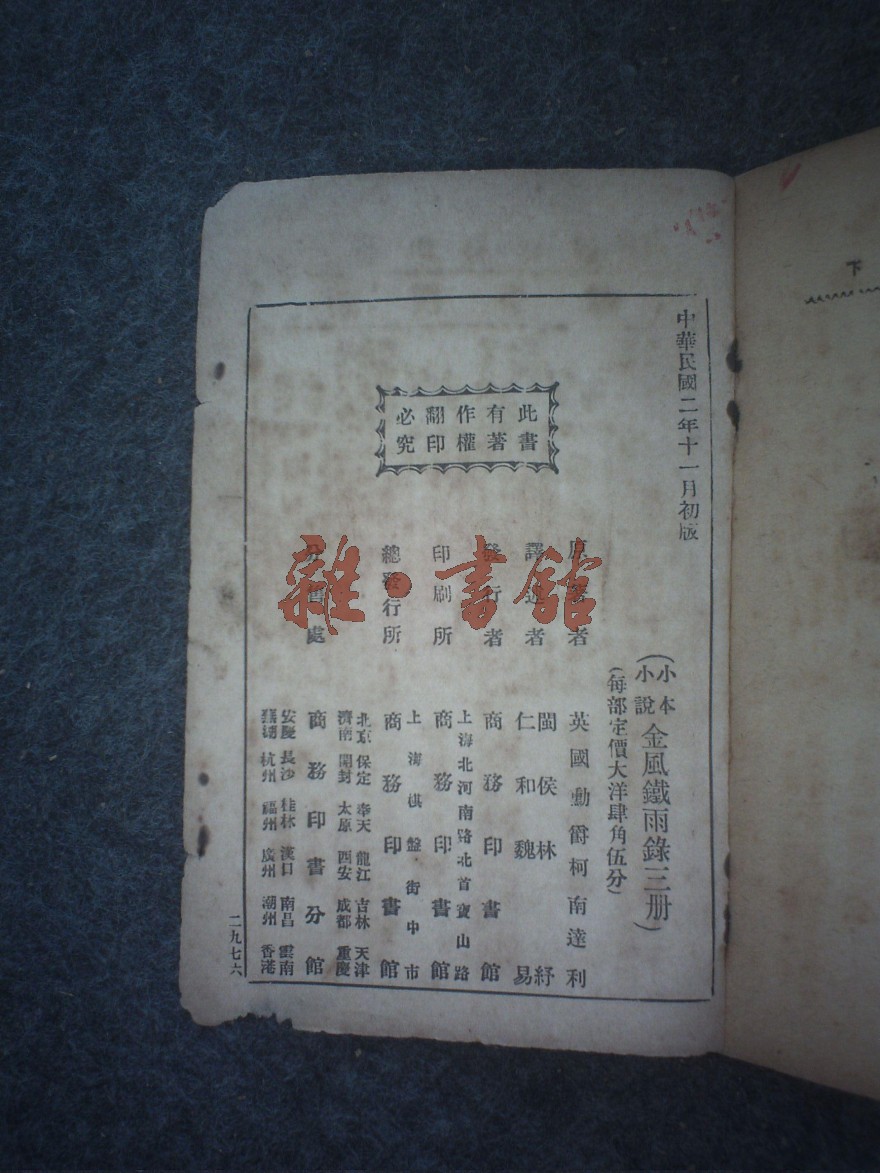 中華民國二年十一月初版
此書
有著
作權
翻印
必究
(小本小說金風鐵雨錄三册)
(每部定價大洋肆角伍分)
原著者 英國勳爵柯南達利
譯述者 閩侯林紓
仁和魏易
發行者 商務印書館
上海北河南路北首寶山路
印刷所 商務印書館
上海棋盤街中市
總發行所 商務印書館
北京 保定 奉天 龍江 吉林 天津
濟南 開封 太原 西安 成都 重慶
分售處 商務印書分館
安慶 長沙 桂林 漢口 南昌 雲南
蕪湖 杭州 福州 廣州 潮州 香港
二九七六
雜·書館
下